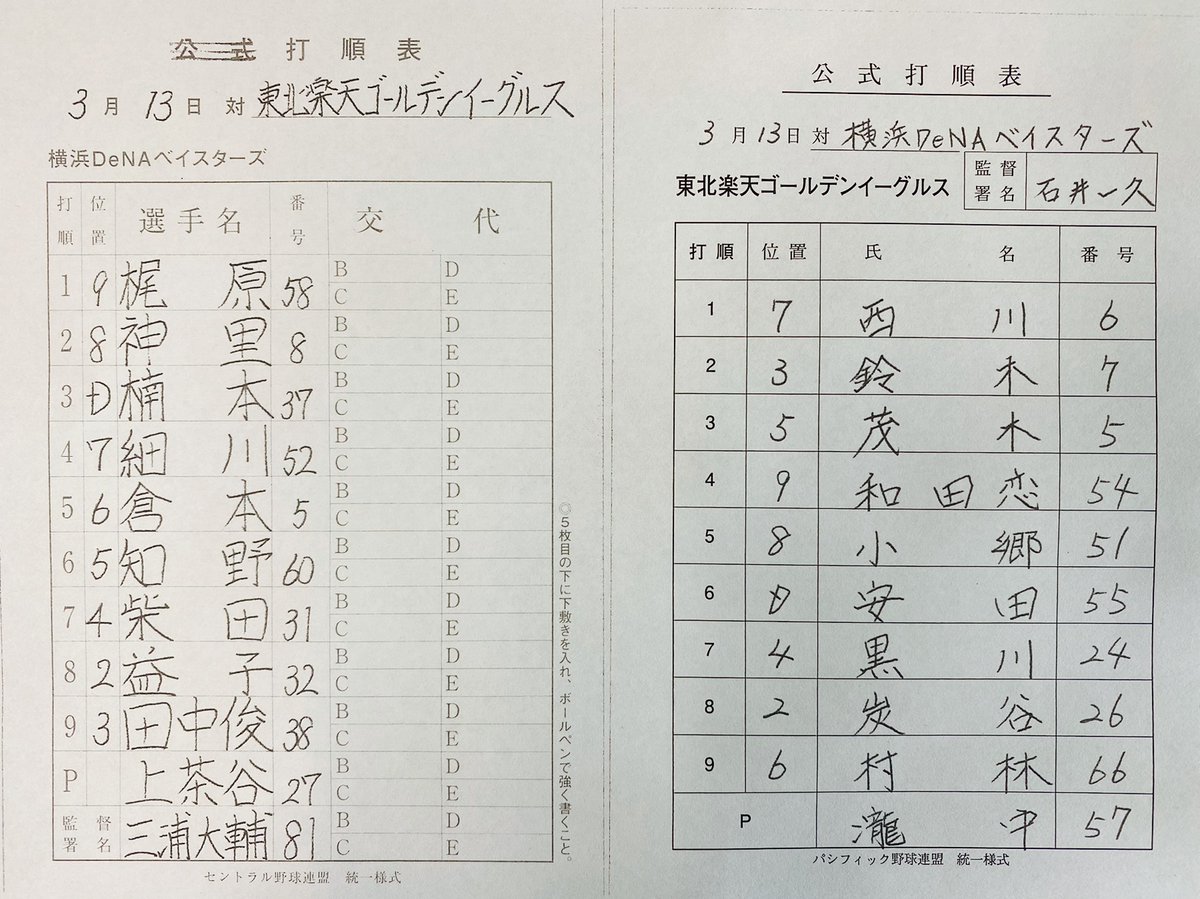 公式打順表
3月13日 対 東北楽天ゴールデンイーグルス
横浜DeNAベイスターズ
打順 位置 選手名 番号 交代
1 9 梶原 58 B C D E
2 8 神里 8 B C D E
3 D 楠本 37 B C D E
4 7 細川 52 B C D E
5 6 倉本 5 B C D E
6 5 知野 60 B C D E
7 4 柴田 31 B C D E
8 2 益子 32 B C D E
9 3 田中俊 38 B C D E
P 上茶谷 27 B C D E
監督署名 三浦大輔 81 B C D E
セントラル野球連盟 統一様式
◎5枚目の下に下敷きを入れ、ボールペンで強く書くこと。
公式打順表
3月13日 対 横浜DeNAベイスターズ
東北楽天ゴールデンイーグルス 監督署名 石井一久
打順 位置 氏名 番号
1 7 西川 6
2 3 鈴木 7
3 5 茂木 5
4 9 和田恋 54
5 8 小郷 51
6 D 安田 55
7 4 黒川 24
8 2 炭谷 26
9 6 村林 66
P 瀧中 57
パシフィック野球連盟 統一様式